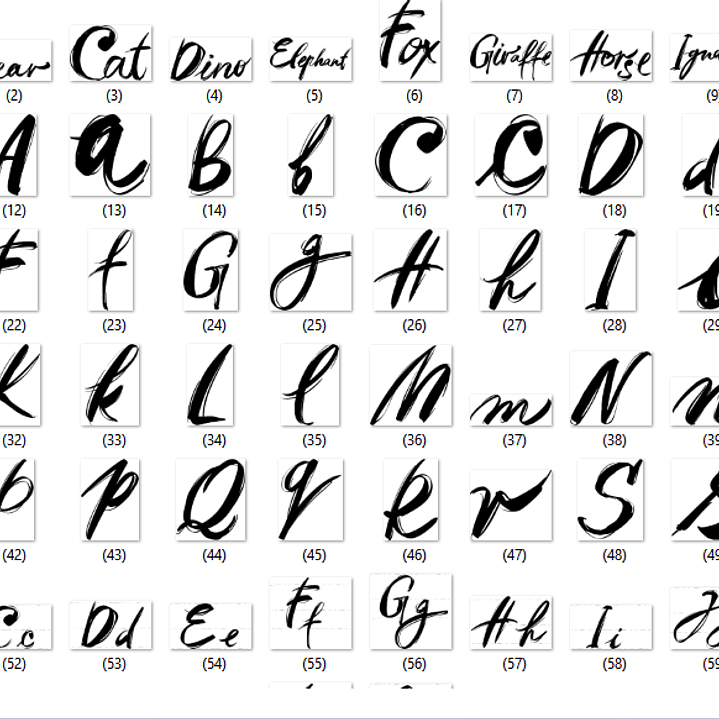 ear Cat Dino Elephant Fox Giraffe Horse Igua
(2) (3) (4) (5) (6) (7) (8) (9)
A a B b C c D d
(12) (13) (14) (15) (16) (17) (18) (19
F f G g H h I
(22) (23) (24) (25) (26) (27) (28) (29
K k L l M m N n
(32) (33) (34) (35) (36) (37) (38) (39
p Q q R r S
(42) (43) (44) (45) (46) (47) (48) (49
Cc Dd Ee Ff Gg Hh Ii Jj
(52) (53) (54) (55) (56) (57) (58) (59